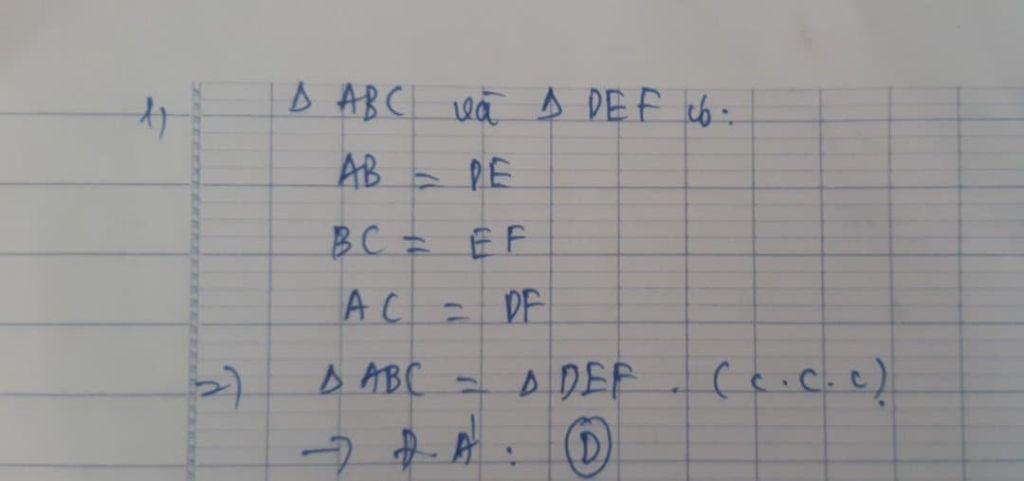 1) Δ ABC và Δ DEF có:
AB = DE
BC = EF
AC = DF
=) Δ ABC = Δ DEF. (c.c.c)
→ Đ.A: D